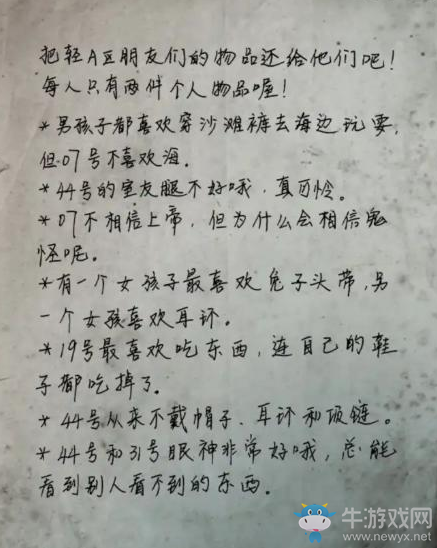 把轻A区朋友们的物品还给他们吧!
每人只有两件个人物品喔!
*男孩子都喜欢穿沙滩裤去海边玩耍,
但07号不喜欢海.
*44号的室友腿不好哦,真可怜。
*07不相信上帝,但为什么会相信鬼
怪呢。
*有一个女孩子最喜欢兔子头带,另
一个女孩喜欢耳环。
*19号最喜欢吃东西,连自己的鞋
子都吃掉了。
*44号从来不戴帽子、耳环和项链。
*44号和31号眼神非常好哦,总能
看到别人看不到的东西。
牛游戏网
www.newyx.net